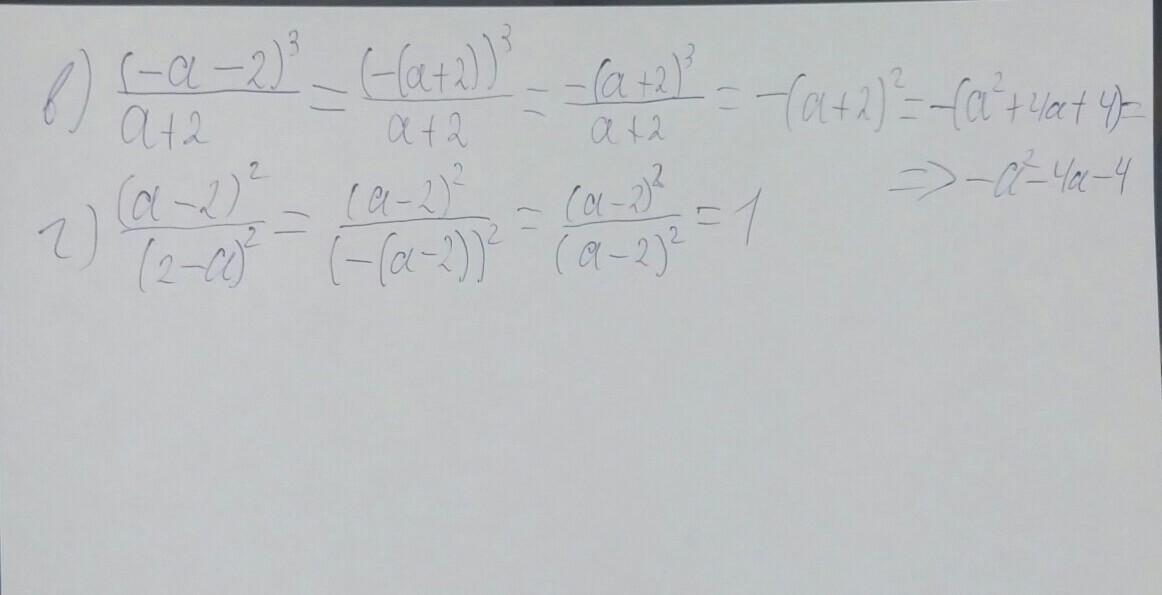 в) (-a-2)³/(a+2) = (-(a+2))³/(a+2) = -(a+2)³/(a+2) = -(a+2)² = -(a²+4a+4) =
=> -a²-4a-4
г) (a-2)²/(2-a)² = (a-2)²/(-(a-2))² = (a-2)²/(a-2)² = 1